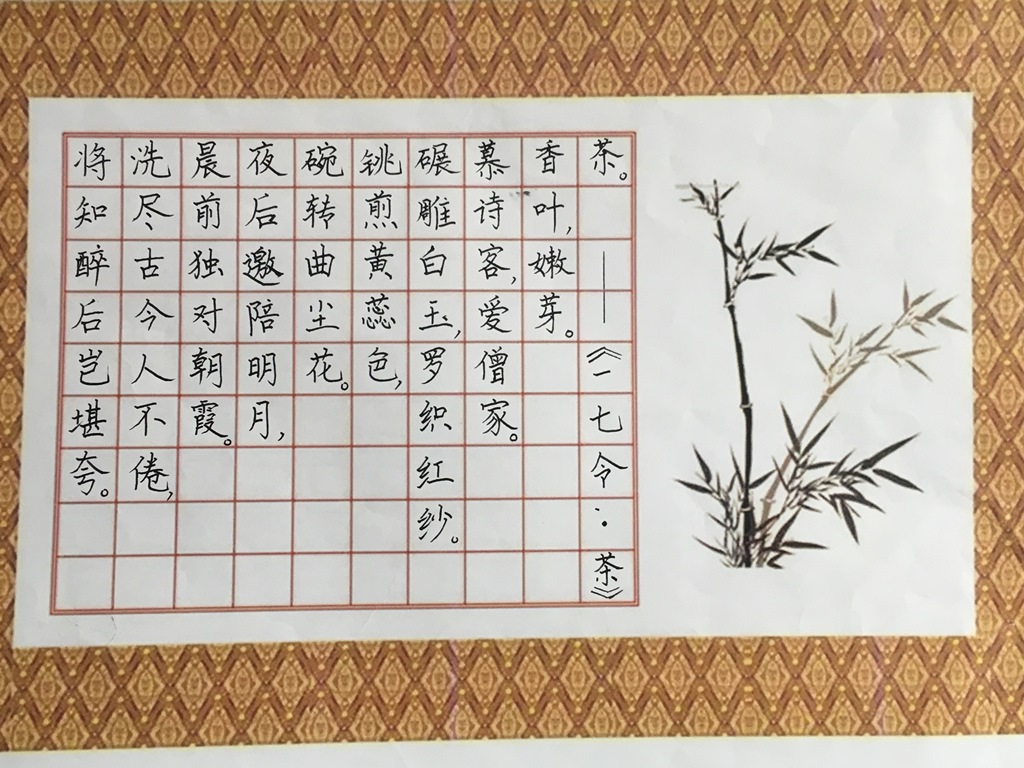 茶。——《一七令·茶》
香叶,嫩芽。
慕诗客,爱僧家。
碾雕白玉,罗织红纱。
铫煎黄蕊色,
碗转曲尘花。
夜后邀陪明月,
晨前独对朝霞。
洗尽古今人不倦,
将知醉后岂堪夸。